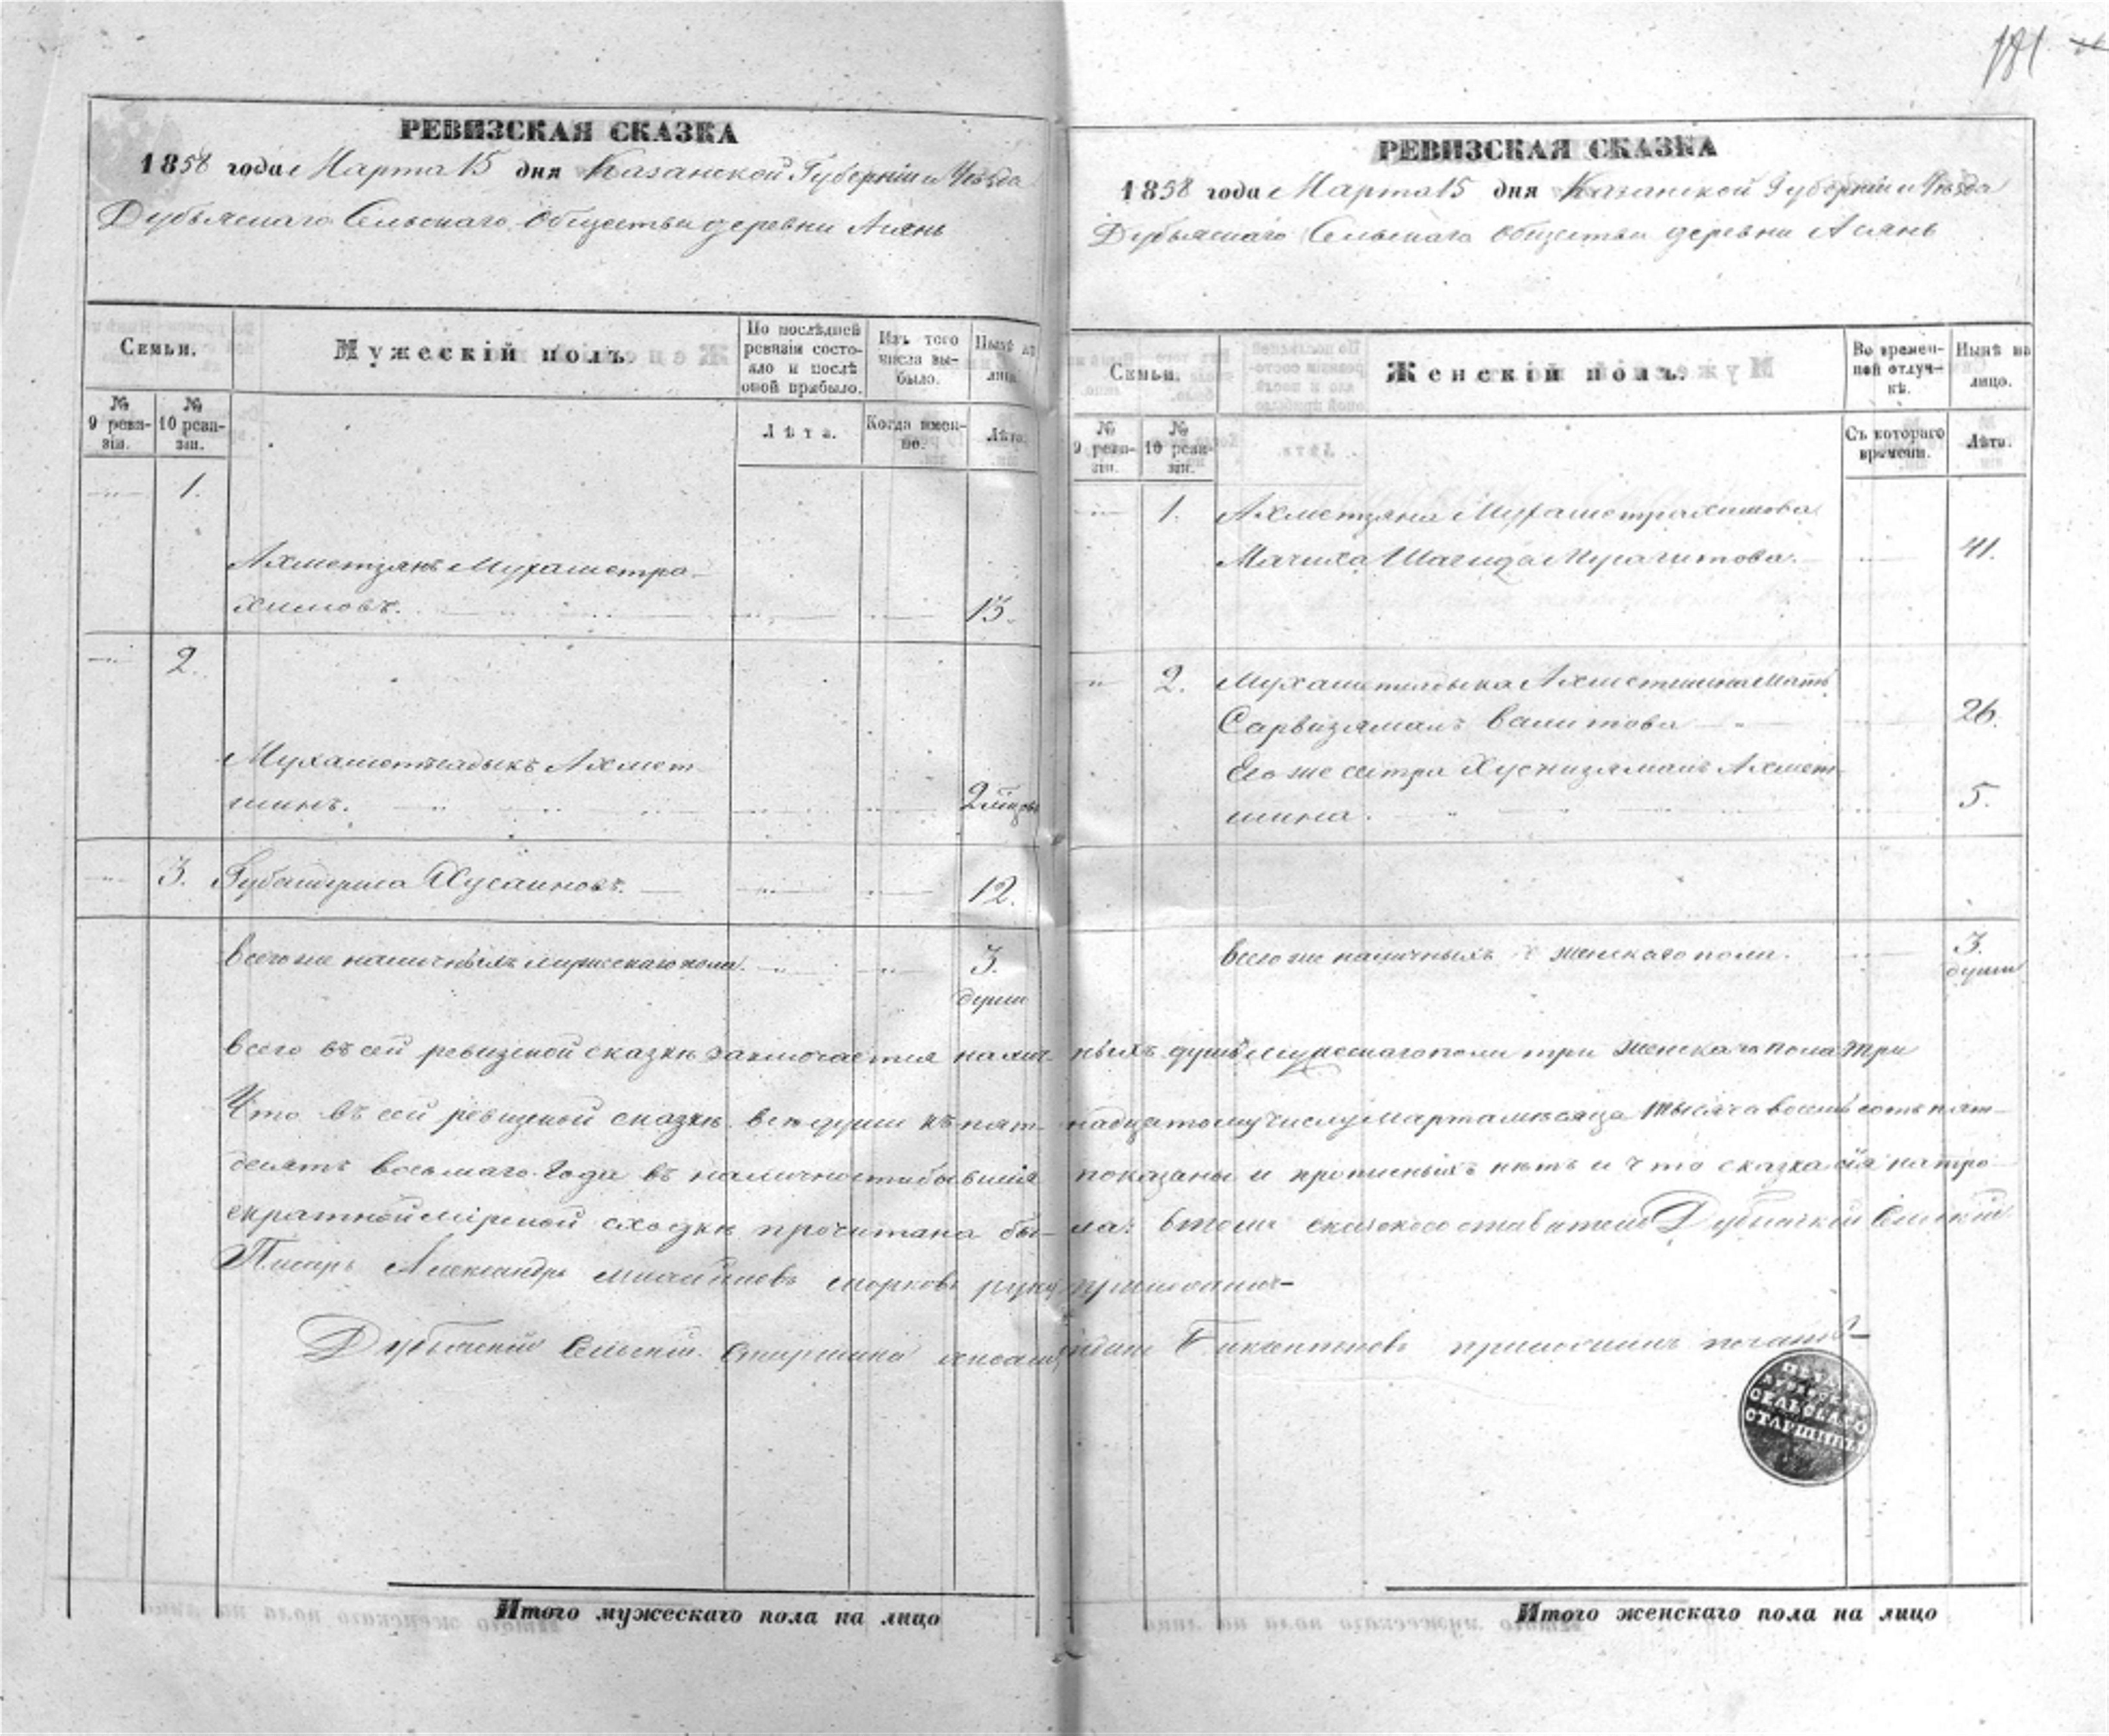 181
РЕВИЗСКАЯ СКАЗКА
1858 года Марта 15 дня Казанской Губерніи и Уѣзда
Дубъяскаго Сельскаго Общества деревни Аланъ
Семьи.
Мужескій полъ.
По послѣдней ревизіи состояло и послѣ оной прибыло.
Изъ того числа выбыло.
Нынѣ на лицо.
№ 9 ревизіи.
№ 10 ревизіи.
Лѣта.
Когда именно.
Лѣта.
1.
Ахметзянъ Мухаметра-
химовъ. 13.
2.
Ахмет-
шинъ. 2
3. Хусаиновъ. 12.
Всего же наличныхъ мужескаго пола. 3.
души
РЕВИЗСКАЯ СКАЗКА
1858 года Марта 15 дня Казанской Губерніи и Уѣзда
Дубъяскаго Сельскаго Общества деревни
Семьи.
Женскій полъ.
Во временной отлучкѣ.
Нынѣ на лицо.
№ 9 ревизіи.
№ 10 ревизіи.
Съ котораго времени.
Лѣта.
1. Ахметзяна Мухаметрахимова
Мачиха 41.
2. Ахметшина Мать
Сарвизямалъ Валитова 26.
Его же сестра Хуснизямалъ Ахмет-
шина. 5.
Всего же наличныхъ женскаго пола. 3.
души
Всего въ сей ревизской сказкѣ заключается наличныхъ душъ мужескаго пола три женскаго пола три
Что въ сей ревизской сказкѣ всѣ души къ пятнадцатому числу Марта мѣсяца тысяча восемь сотъ пят-
десятъ восьмаго года въ наличности бывшія показаны и прописныхъ нѣтъ и что сказка сія на тро-
екратной мірской сходкѣ прочитана была: Сельскій
Писарь Александръ руку приложилъ
Сельскій Старшина приложилъ печать
СЕЛЬСКАГО
СТАРШИНЫ
Итого мужескаго пола на лицо
Итого женскаго пола на лицо